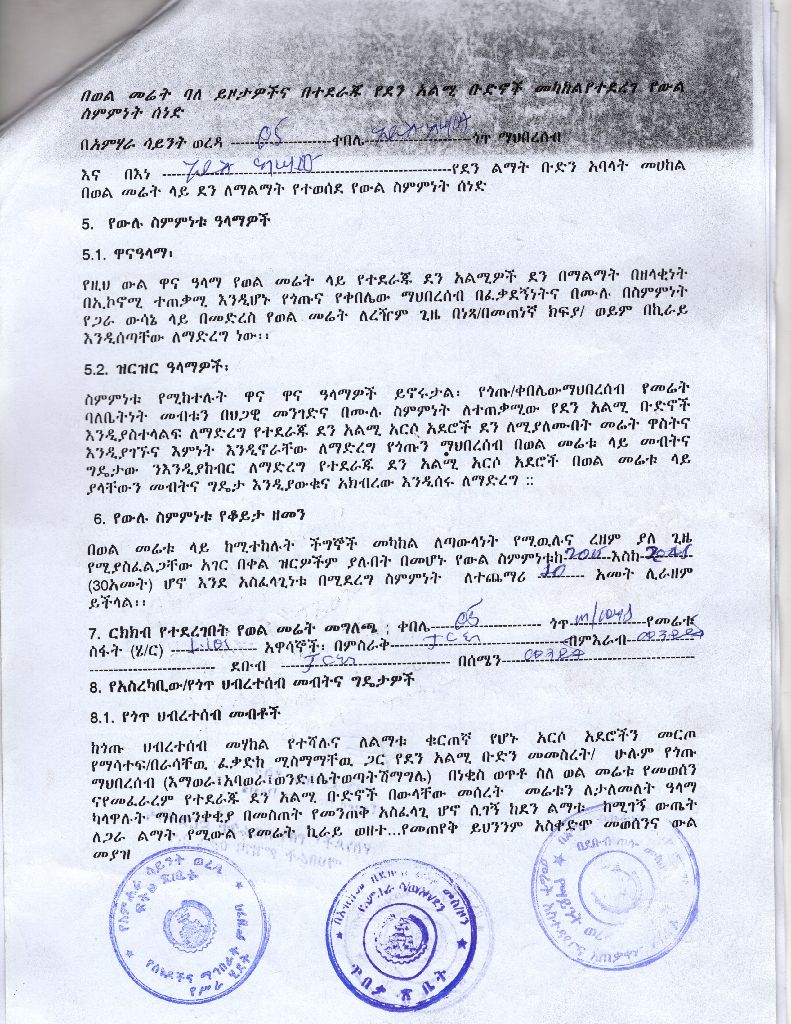 በወል መሬት ባለ ይዞታዎችና በተደራጁ የደን አልሚ ቡድኖች መካከልየተደረገ የውል
ስምምነት ሰነድ
በአምሃራ ሳይንት ወረዳ ---------- 05 ---------- ቀበሌ ---------- ጎጥ ማህበረሰብ
እና በእነ ---------- የደን ልማት ቡድን አባላት መሀከል
በወል መሬት ላይ ደን ለማልማት የተወሰደ የውል ስምምነት ሰነድ
5. የውሉ ስምምነቱ ዓላማዎች
5.1. ዋናዓላማ፡
የዚህ ውል ዋና ዓላማ የወል መሬት ላይ የተደራጁ ደን አልሚዎች ደን በማልማት በዘላቂነት
በኢኮኖሚ ተጠቃሚ እንዲሆኑ የጎጡና የቀበሌው ማህበረሰብ በፈቃደኝነትና በሙሉ በስምምነት
የጋራ ውሳኔ ላይ በመድረስ የወል መሬት ለረዥም ጊዜ በነጻ/በመጠነኛ ክፍያ/ ወይም በኪራይ
እንዲሰጣቸው ለማድረግ ነው፡፡
5.2. ዝርዝር ዓላማዎች፡
ስምምነቱ የሚከተሉት ዋና ዋና ዓላማዎች ይኖሩታል፡ የጎጡ/ቀበሌውማህበረሰብ የመሬት
ባለቤትነት መብቱን በህጋዊ መንገድና በሙሉ ስምምነት ለተጠቃሚው የደን አልሚ ቡድኖች
እንዲያስተላልፍ ለማድረግ የተደራጁ ደን አልሚ አርሶ አደሮች ደን ለሚያለሙበት መሬት ዋስትና
እንዲያገኙና እምነት እንዲኖራቸው ለማድረግ የጎጡን ማህበረሰብ በወል መሬቱ ላይ መብትና
ግዴታው ንእንዲያከብር ለማድረግ የተደራጁ ደን አልሚ አርሶ አደሮች በወል መሬቱ ላይ
ያላቸውን መብትና ግዴታ እንዲያውቁና አክብረው እንዲሰሩ ለማድረግ ::
6. የውሉ ስምምነቱ የቆይታ ዘመን
በወል መሬቱ ላይ ከሚተከሉት ችግኞች መካከል ለጣውላነት የሚዉሉና ረዘም ያለ ጊዜ
የሚያስፈልጋቸው አገር በቀል ዝርዎችም ያሉበት በመሆኑ የውል ስምምነቱከ----------እስከ----------
(30አመት) ሆኖ እንደ አስፈላጊነቱ በሚደረግ ስምምነት ለተጨማሪ 10 ---------- አመት ሊራዘም
ይችላል፡፡
7. ርክክብ የተደረገበት የወል መሬት መግለጫ ; ቀበሌ---------- 05 ---------- ጎጥ ---------- የመሬቱ
ስፋት (ሄ/ር) ---------- አዋሳኞች፡ በምስራቅ---------- ----------በምእራብ----------
---------- ደቡብ ---------- በሰሜን----------
8. የአስረካቢው/የጎጥ ህብረተሰብ መብትና ግዴታዎች
8.1. የጎጥ ህብረተሰብ መብቶች
ከጎጡ ሀብረተሰብ መሃከል የተሻሉና ለልማቱ ቁርጠኛ የሆኑ አርሶ አደሮችን መርጦ
የማሳተፍ/በራሳቸዉ ፈቃድከ ሚስማማቸዉ ጋር የደን አልሚ ቡድን መመስረት/ ሁሉም የጎጡ
ማህበረሰብ (እማወራ፤አባወራ፤ወንድ፤ሴትወጣትሽማግሌ) በነቂስ ወጥቶ ስለ ወል መሬቱ የመወሰን
ናየመፈራረም የተደራጁ ደን አልሚ ቡድኖች በውላቸው መሰረት መሬቱን ለታለመለት ዓላማ
ካላዋሉት ማስጠንቀቂያ በመስጠት የመንጠቅ አስፈላጊ ሆኖ ሲገኝ ከደን ልማቱ ከሚገኝ ውጤት
ለጋራ ልማት የሚውል የመሬት ኪራይ ወዘተ...የመጠየቅ ይህንንም አስቀድሞ መወሰንና ውል
መያዝ
የአምሐራ ሳይንት ወረዳ
ፍትህ ጽ/ቤት
ጥበቃ ጽ ቤት